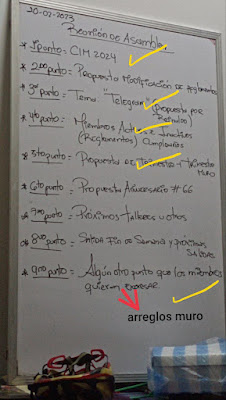 20-02-2023
Reunión de Asamblea
* 1 punto = CIM 2024
* 2do punto = Propuesta Modificación de Reglamentos
* 3er punto = Tema "Telegram" (Propuesta por Reinaldo)
* 4to punto = Miembros Activos e Inactivos
(Reglamentos) Cumpleaños
* 5to punto = Propuestas de
Muro
* 6to punto = Propuesta Aniversario # 66
* 7mo punto = Próximos talleres u otros
* 8vo punto = Salida Fin de Semana y próximas
Salidas
* 9no punto = Algún otro punto que los miembros
quieran expresar
arreglos muro